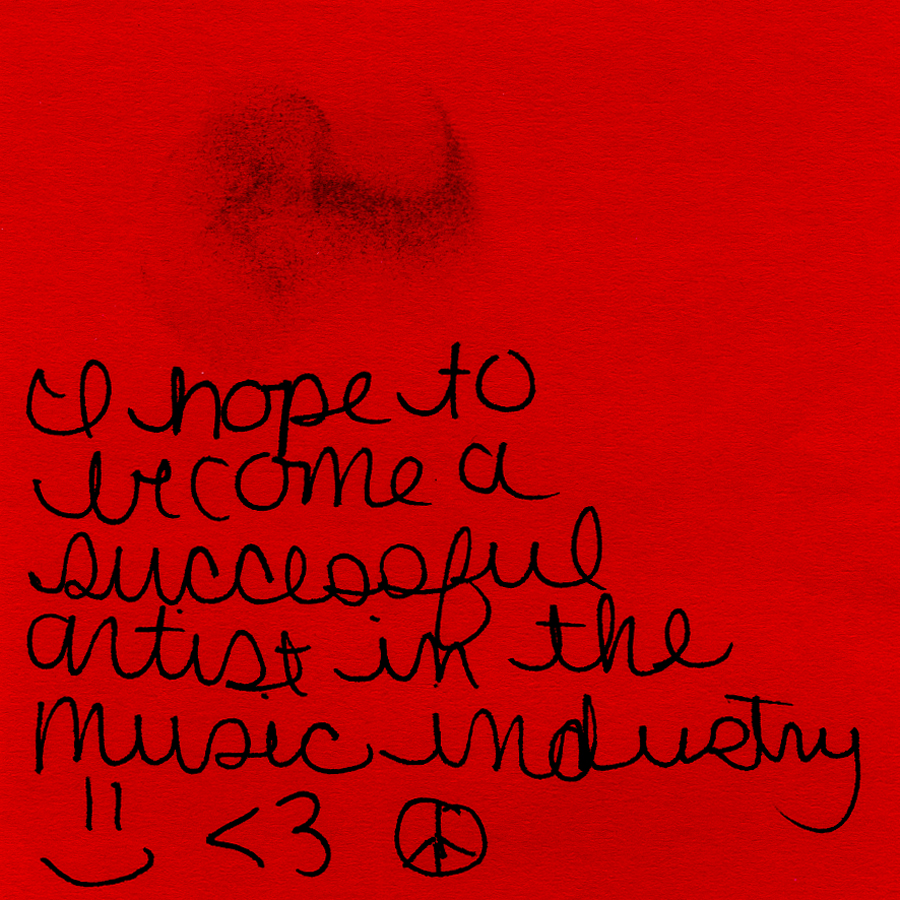 I hope to
become a
successful
artist in the
music industry
<3